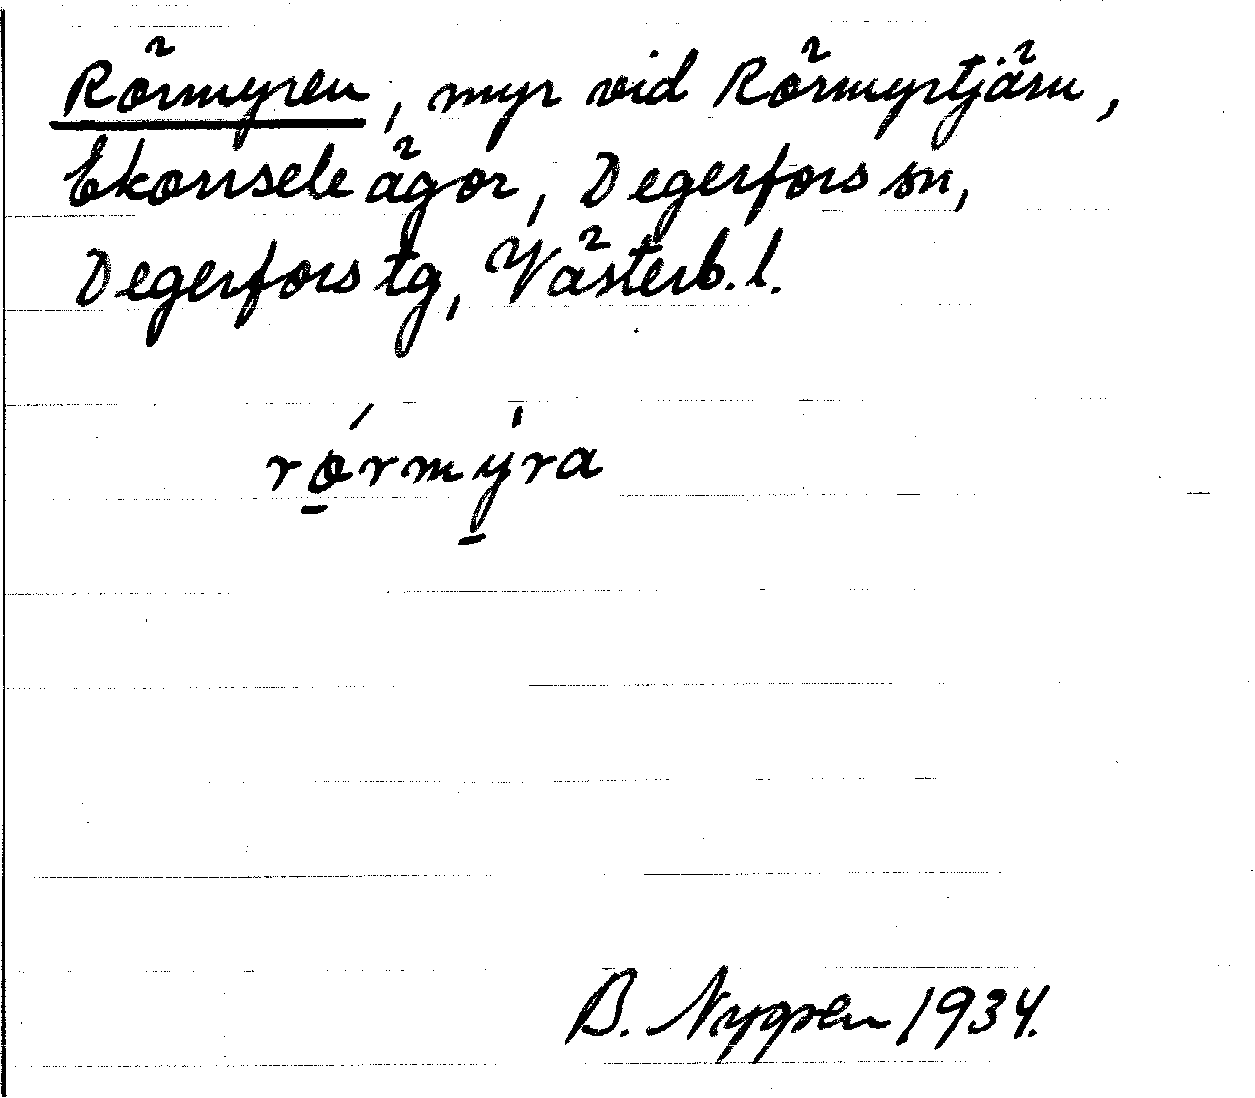 Rörmyren, myr vid Rörmyrtjärn,
Ekorrsele ägor, Degerfors sn,
Degerfors tg, Västerb. l.
rǿ̱rmy̱̍ra
B. Nygren 1934.